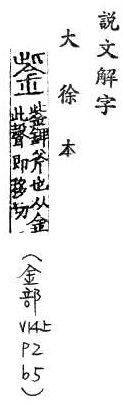 說文解字
大徐本
鈭
鈭錍斧也从金
此聲即移切
（金部
V14上
P2
b5）